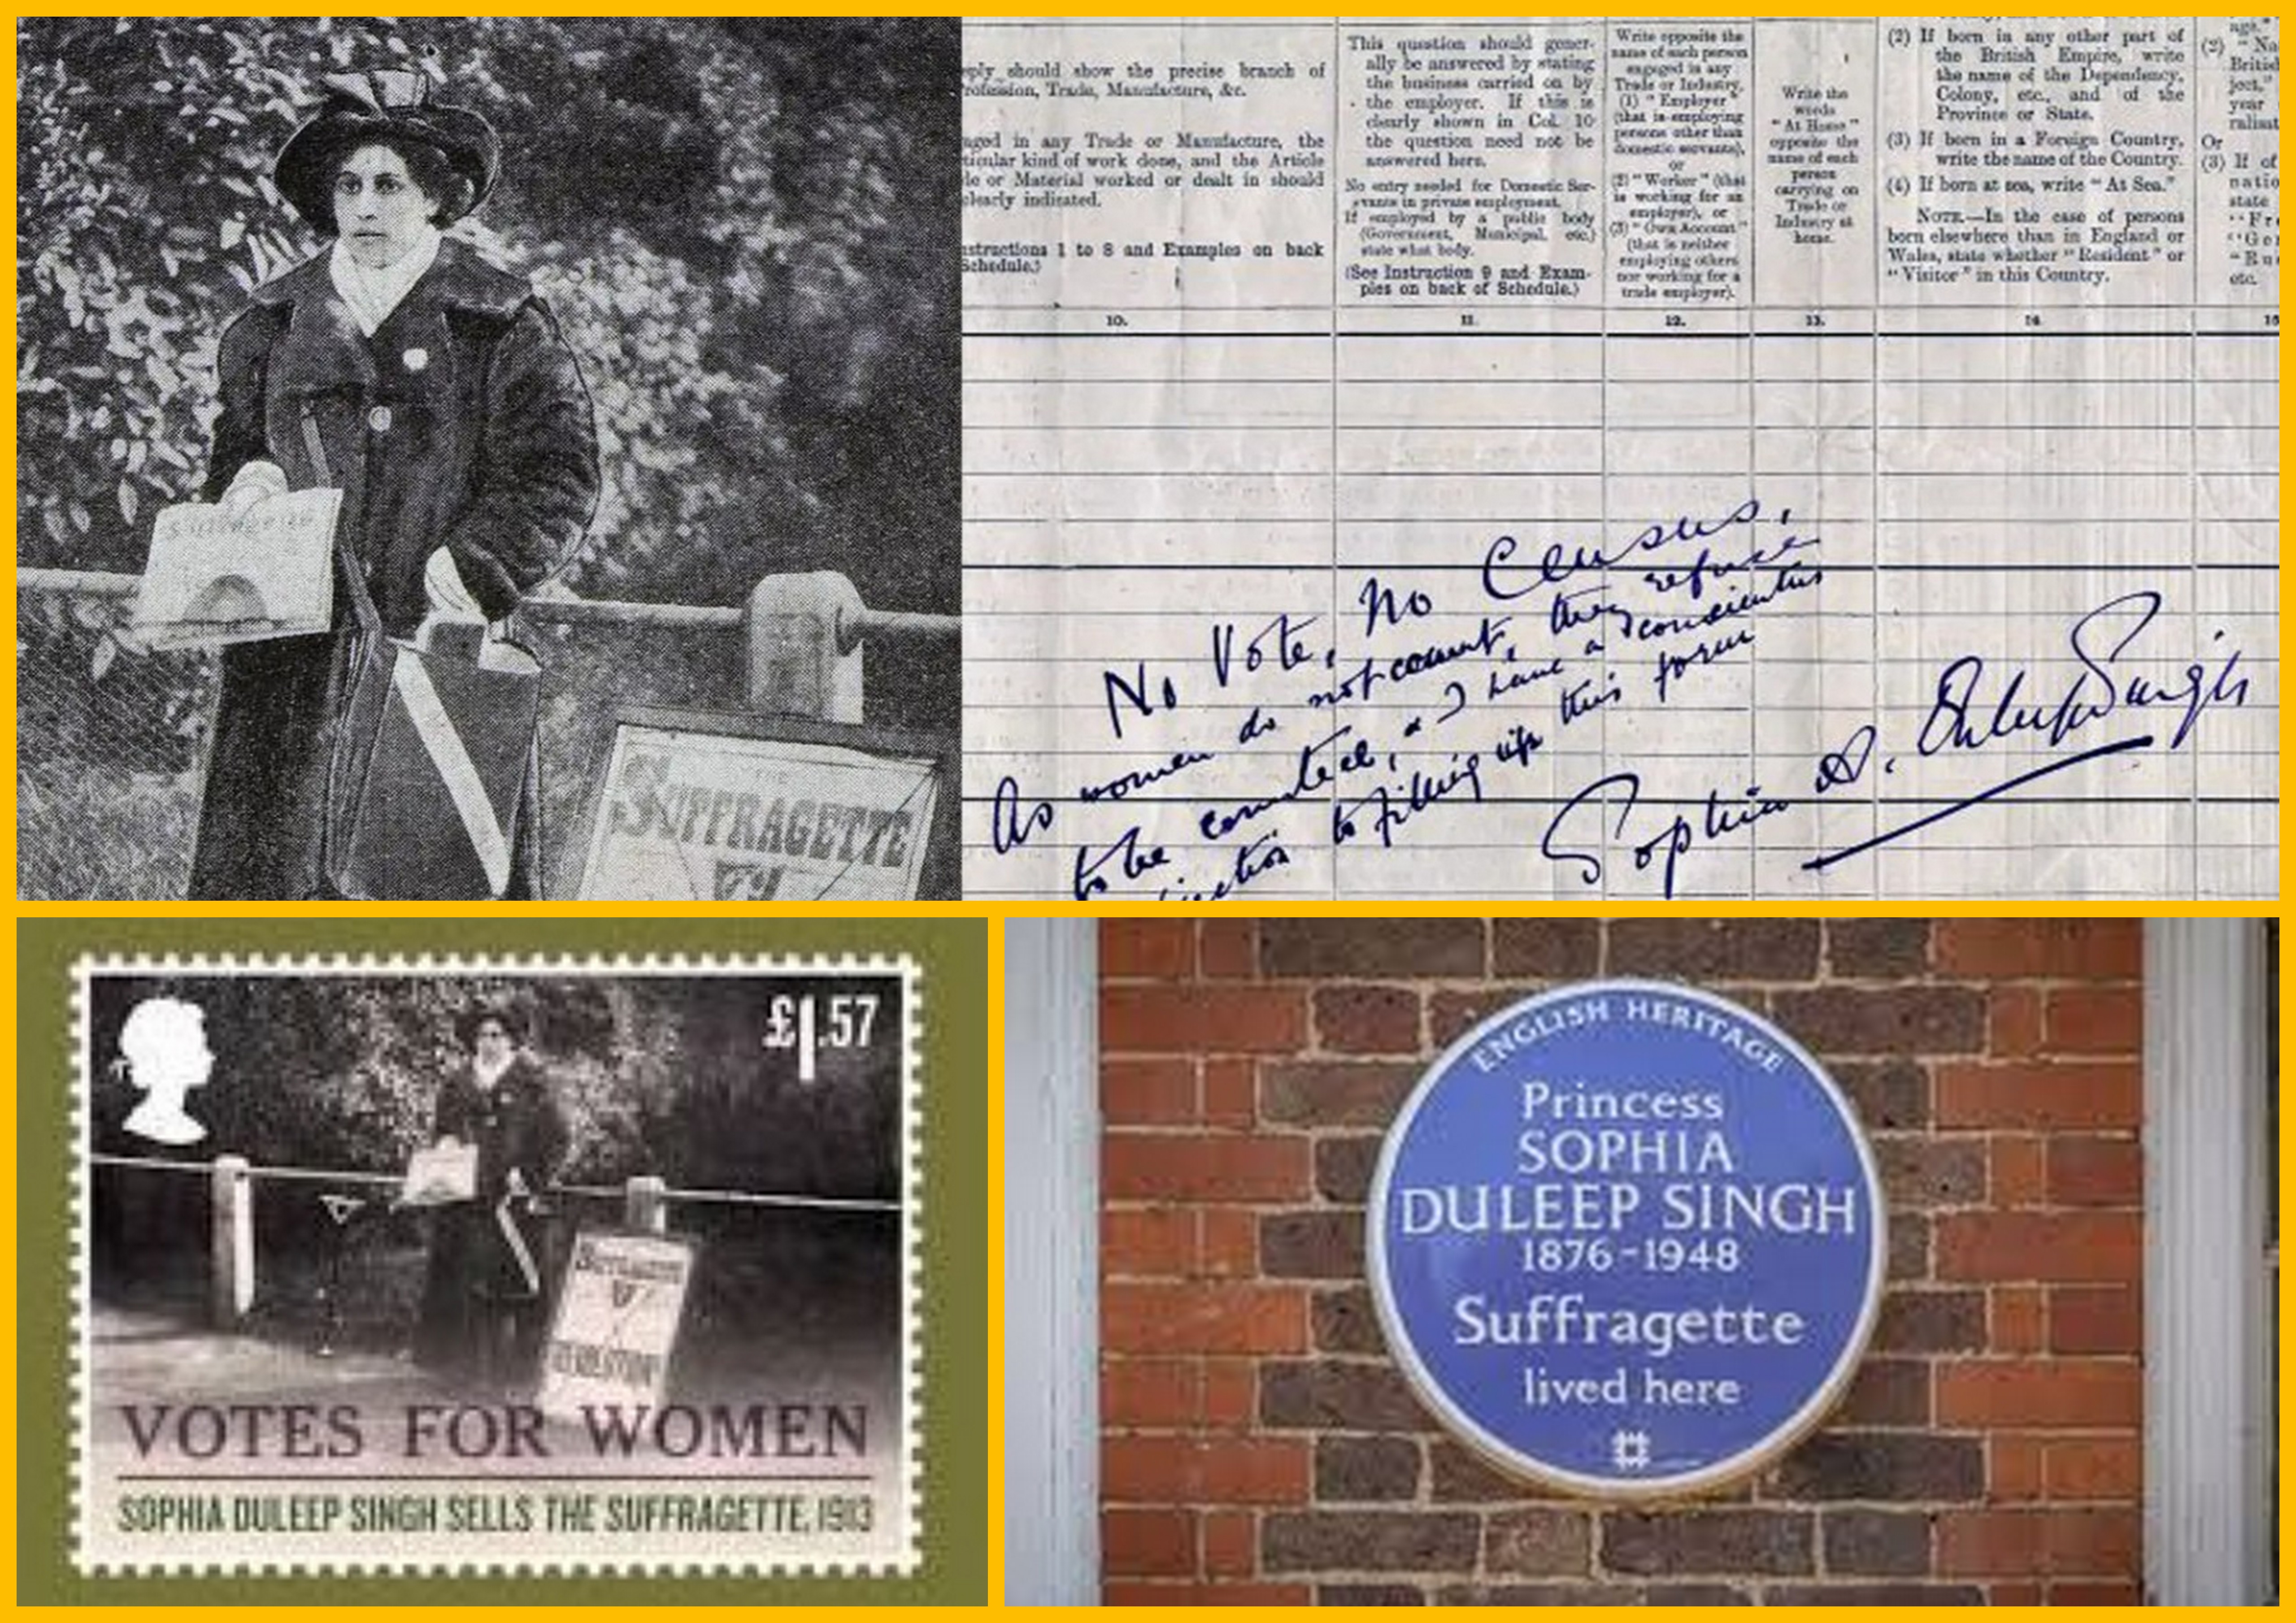 Suffragette
THE
SUFFRAGETTE
eply should show the precise branch of
rofession, Trade, Manufacture, &c.
aged in any Trade or Manufacture, the
ticular kind of work done, and the Article
le or Material worked or dealt in should
clearly indicated.
structions 1 to 8 and Examples on back
Schedule.)
10.
This question should gener-
ally be answered by stating
the business carried on by
the employer. If this is
clearly shown in Col. 10
the question need not be
answered here.
No entry needed for Domestic Ser-
vants in private employment.
If employed by a public body
(Government, Municipal, etc.)
state what body.
(See Instruction 9 and Exam-
ples on back of Schedule.)
11.
Write opposite the
name of each person
engaged in any
Trade or Industry,
(1) "Employer"
(that is employing
persons other than
domestic servants),
or
(2) "Worker" (that
is working for an
employer), or
(3) "Own Account"
(that is neither
employing others
nor working for a
trade employer).
12.
Write the
words
"At Home"
opposite the
name of each
person
carrying on
Trade or
Industry at
home.
13.
(2) If born in any other part of
the British Empire, write
the name of the Dependency,
Colony, etc., and of the
Province or State.
(3) If born in a Foreign Country,
write the name of the Country.
(4) If born at sea, write "At Sea."
NOTE.—In the case of persons
born elsewhere than in England or
Wales, state whether "Resident" or
"Visitor" in this Country.
14.
(2) "Na
British
ject,"
year
ralisat
Or
(3) If of
natio
state
"Fre
"Ger
"Rus
etc.
15
No Vote, No Census,
As women do not count, they refuse
to be counted, & I have a conscientious
jection to filling up this form
Sophia A. Duleep Singh
£1.57
VOTES FOR WOMEN
SOPHIA DULEEP SINGH SELLS THE SUFFRAGETTE, 1913
ENGLISH HERITAGE
Princess
SOPHIA
DULEEP SINGH
1876-1948
Suffragette
lived here